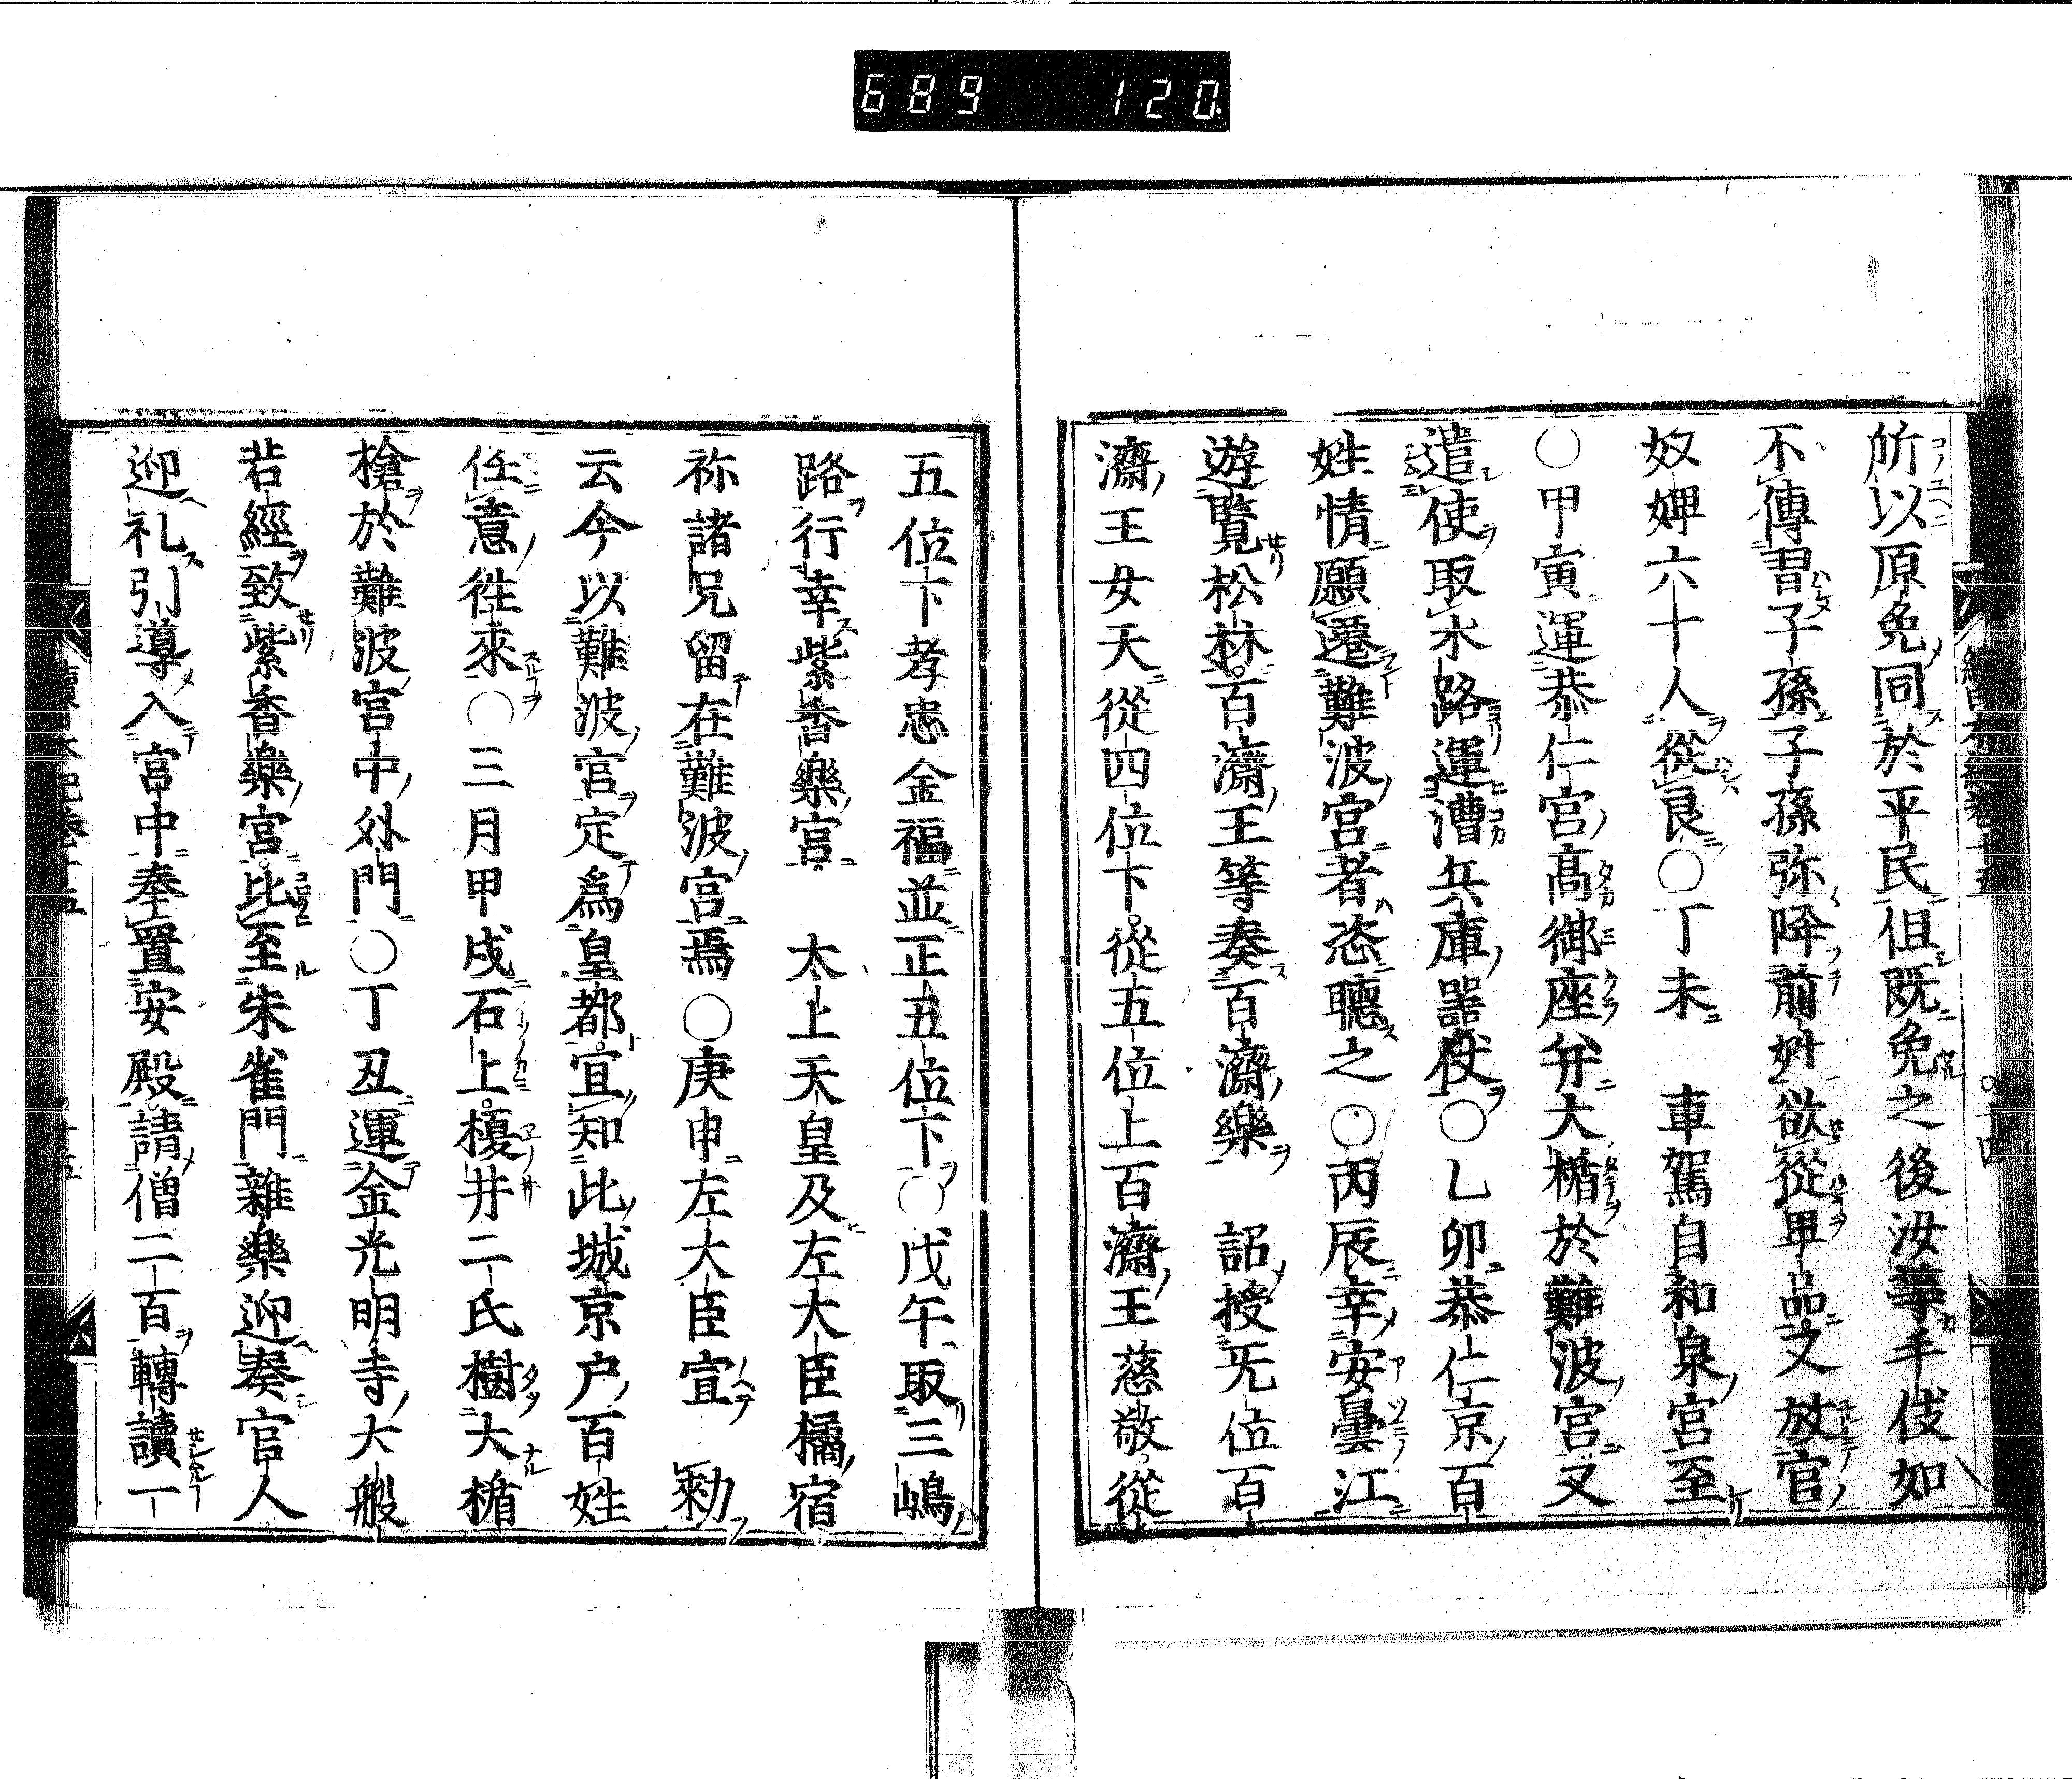 689 120
所以原免同於平民但既免之後汝等手伎如
不傳習子孫子孫弥降前姓欲從卑品又放官
奴婢六十人從良〇丁未 車駕自和泉宮至
〇甲寅運恭仁宮高御座幷大楯於難波宮又
遣使取水路運漕兵庫器仗〇乙卯恭仁京百
姓情願遷難波宮者恣聴之〇丙辰幸安曇江
遊覽松林百濟王等奏百濟樂 詔授无位百
濟王女天從四位下從五位上百濟王慈敬從
五位下孝忠金福並正五位下〇戊午取三嶋
路行幸紫香樂宮 太上天皇及左大臣橘宿
祢諸兄留在難波宮焉〇庚申左大臣宣 勅
云今以難波宮定爲皇都宜知此城京户百姓
任意徃來〇三月甲戌石上榎井二氏樹大楯
槍於難波宮中外門〇丁丑運金光明寺大般
若經致紫香樂宮比至朱雀門雜樂迎奏官人
迎礼引導入宮中奉置安殿請僧二百轉讀一